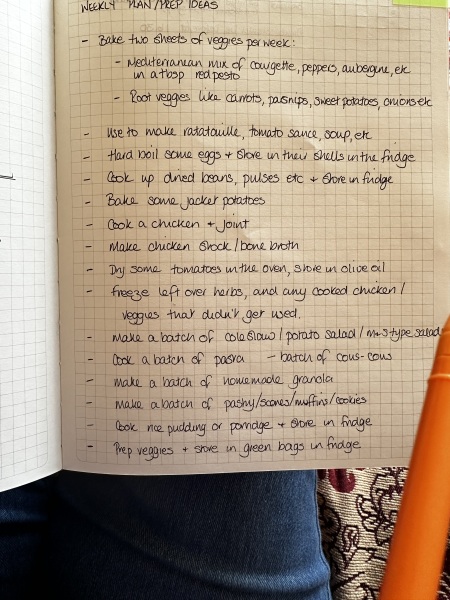 WEEKLY PLAN/PREP IDEAS
- Bake two sheets of veggies per week:
- Mediterranean mix of courgette, peppers, aubergine, etc
in a tbsp red pesto
- Root veggies like carrots, parsnips, sweet potatoes, onions etc
- Use to make ratatouille, tomato sauce, soup, etc
- Hard boil some eggs + store in their shells in the fridge
- Cook up dried beans, pulses etc + store in fridge
- Bake some jacket potatoes
- Cook a chicken + joint
- Make chicken stock / bone broth
- Dry some tomatoes in the oven, store in olive oil
- freeze left over herbs, and any cooked chicken /
veggies that didn't get used.
- make a batch of coleslaw / potato salad / M+S type salad
- Cook a batch of pasta - batch of cous-cous
- Make a batch of homemade granola
- Make a batch of pastry/scones/muffins/cookies
- Cook rice pudding or porridge + store in fridge
- Prep veggies + store in green bags in fridge